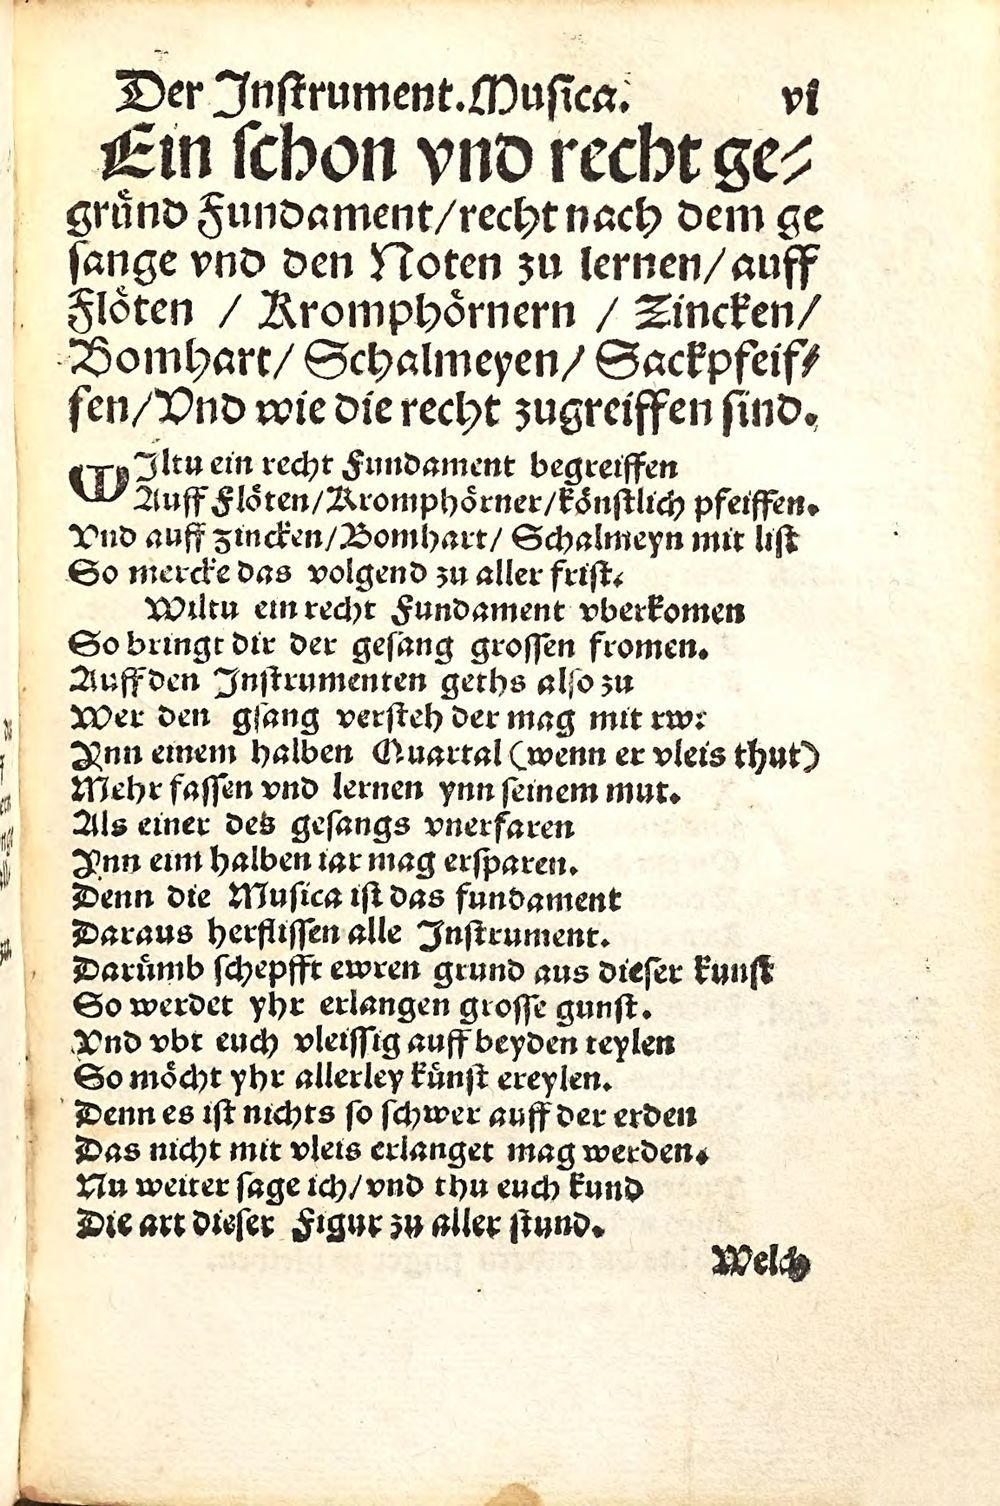 Der Instrument. Musica. vi
Ein schon vnd recht ge⸗
gründ Fundament/ recht nach dem ge
sange vnd den Noten zu lernen/ auff
Flöten / Kromphörnern / Zincken/
Bomhart/ Schalmeyen/ Sackpfeif⸗
fen/ Vnd wie die recht zugreiffen sind.
WIltu ein recht Fundament begreiffen
Auff Flöten/ Kromphörner/ könstlich pfeiffen.
Vnd auff zincken/ Bomhart/ Schalmeyn mit list
So mercke das volgend zu aller frist.
Wiltu ein recht Fundament vberkomen
So bringt dir der gesang grossen fromen.
Auff den Instrumenten geths also zu
Wer den gsang versteh der mag mit rw:
Ynn einem halben Quartal (wenn er vleis thut)
Mehr fassen vnd lernen ynn seinem mut.
Als einer des gesangs vnerfaren
Ynn eim halben iar mag ersparen.
Denn die Musica ist das fundament
Daraus herflissen alle Instrument.
Darümb schepfft ewren grund aus dieser kunst
So werdet yhr erlangen grosse gunst.
Vnd vbt euch vleissig auff beyden teylen
So möcht yhr allerley künst ereylen.
Denn es ist nichts so schwer auff der erden
Das nicht mit vleis erlanget mag werden.
Nu weiter sage ich/ vnd thu euch kund
Die art dieser Figur zu aller stund.
Welch